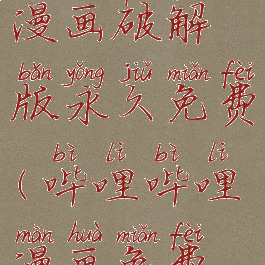 漫画破解
bǎn yǒng jiǔ miǎn fèi
版永久免费
bì lī bì lī
(哔哩哔哩
màn huà miǎn fèi
漫画免费